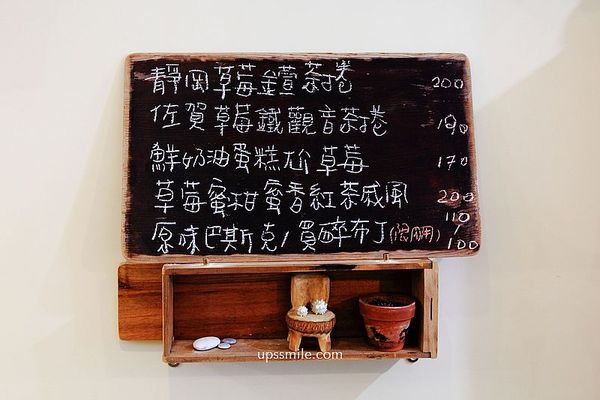 靜岡草莓鐵萱茶捲 200
佐賀草莓鐵觀音茶捲 190
鮮奶油蛋糕尬草莓 170
草莓蜜柑蜜香紅茶戚風 200
原味巴斯克/買醉布丁 110/100
upssmile.com